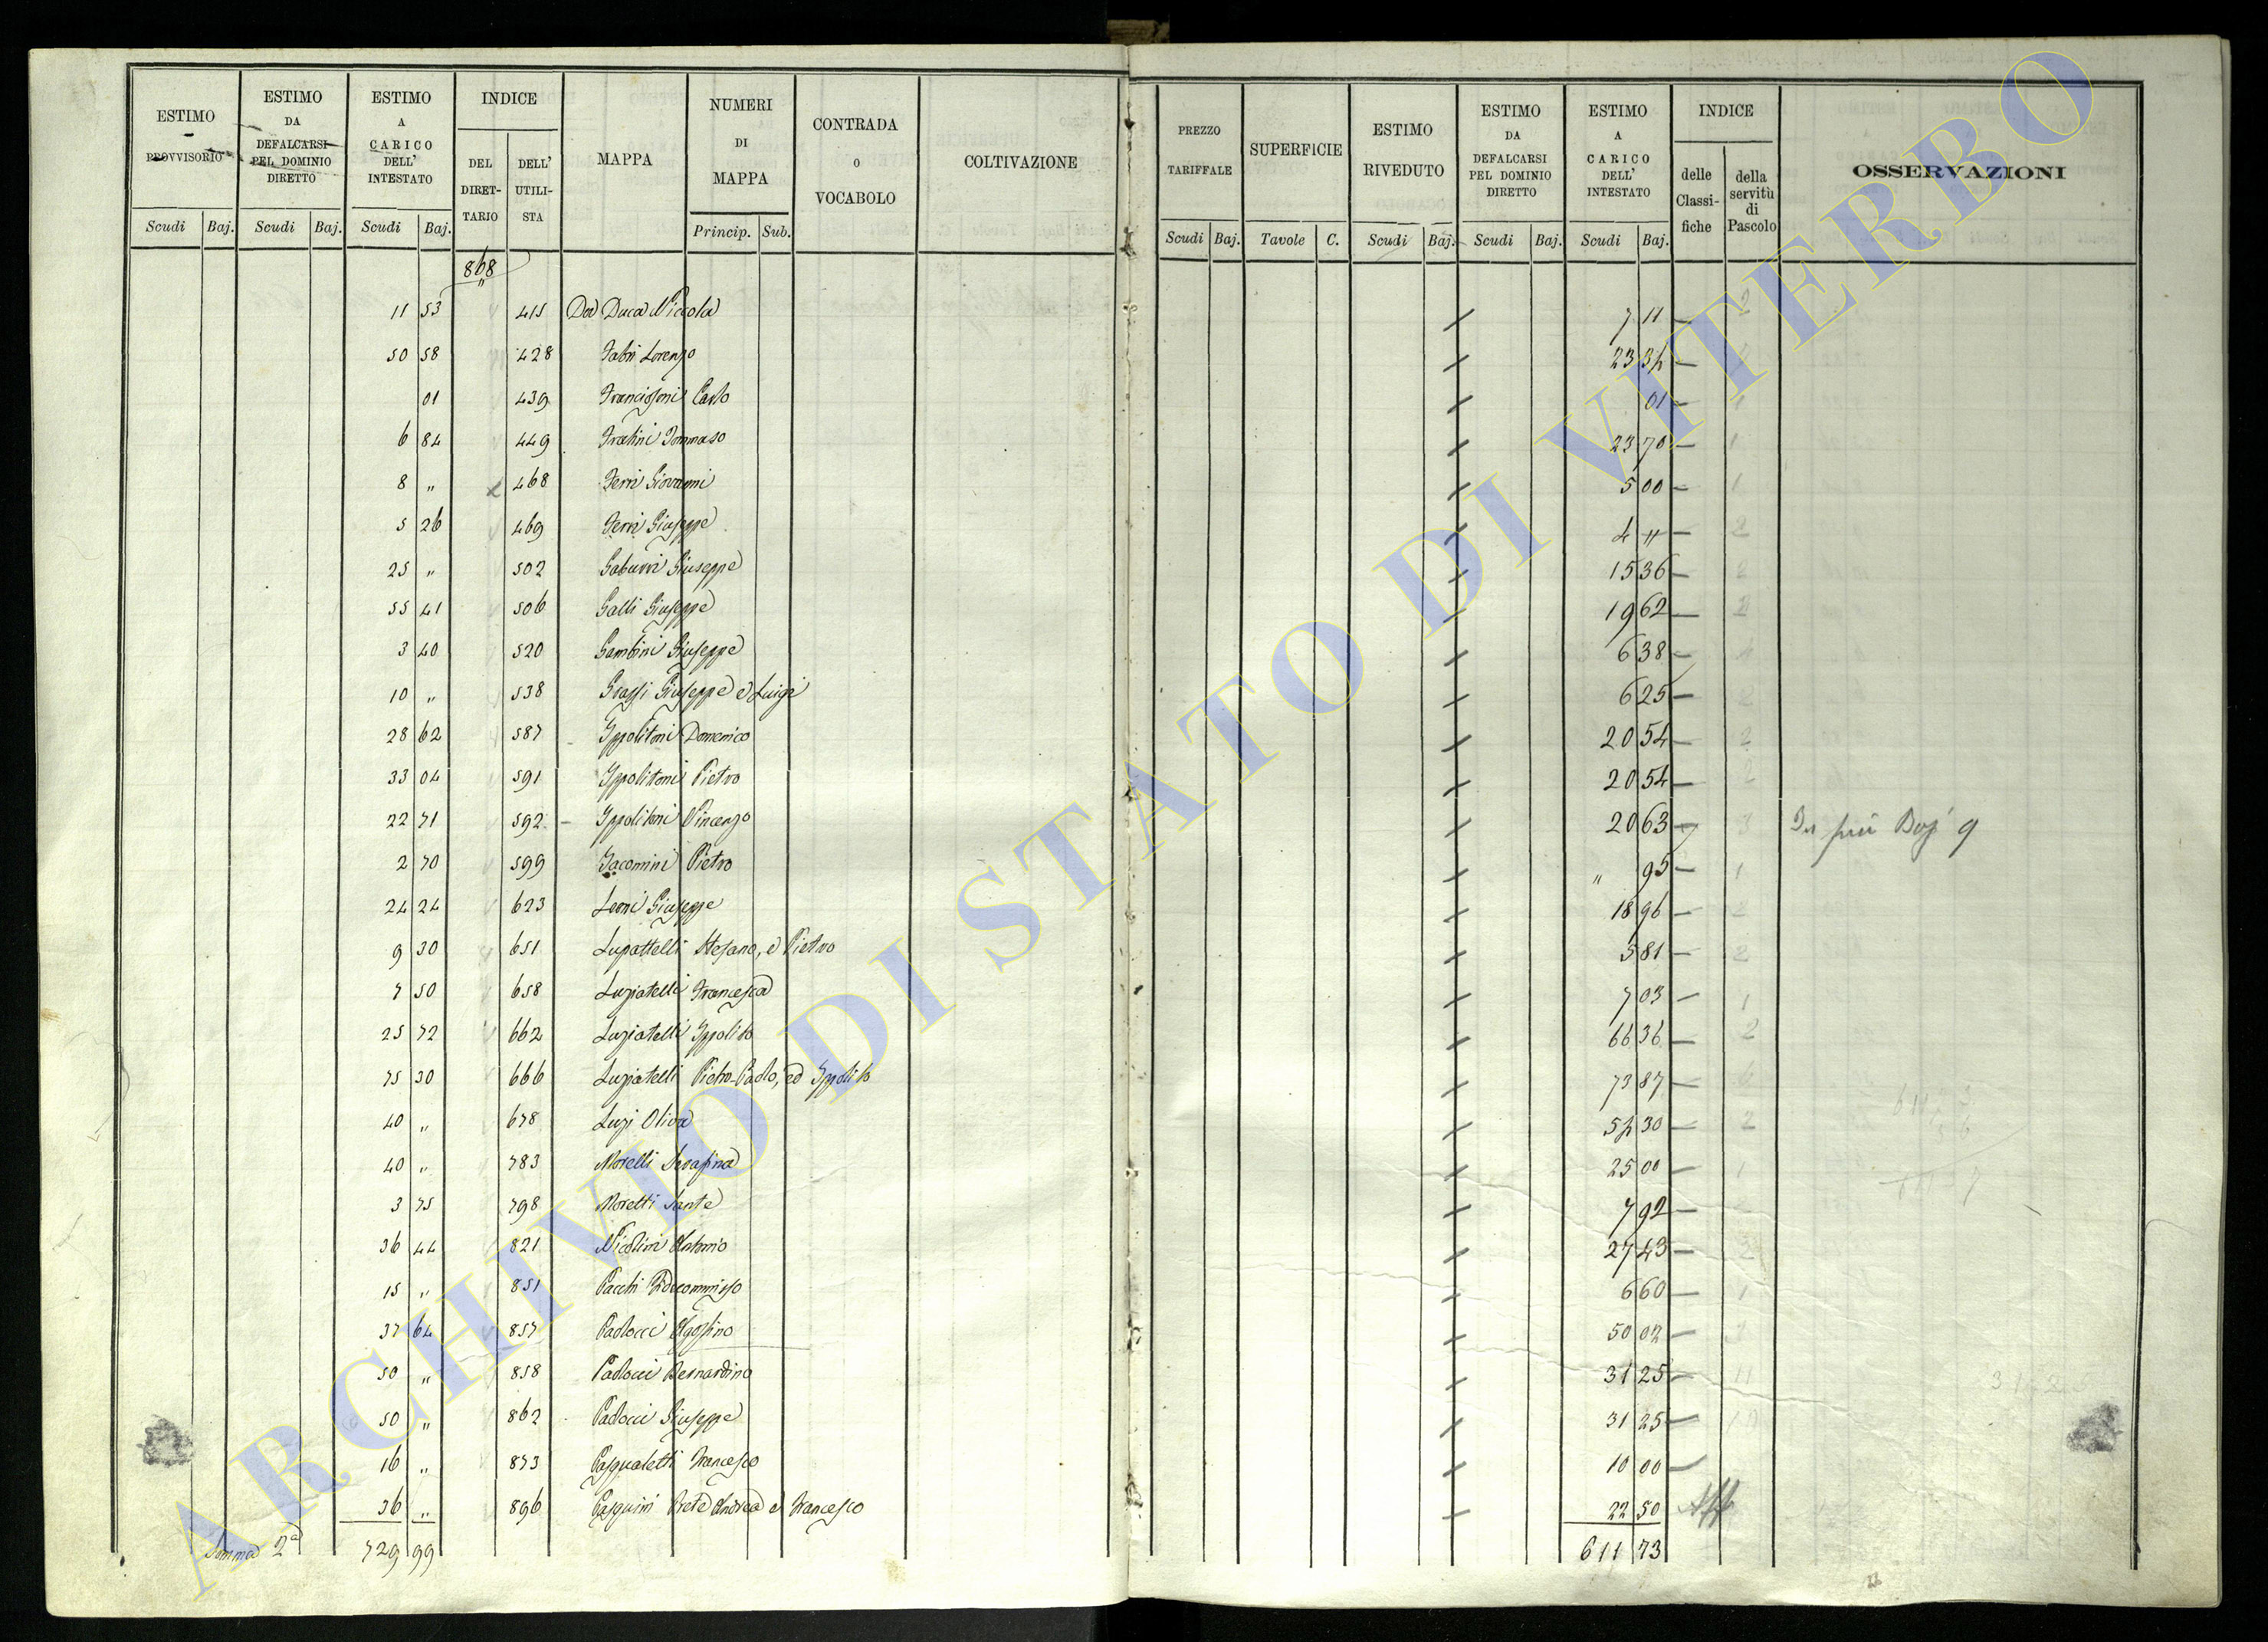 ESTIMO PROVVISORIO
ESTIMO DA DEFALCARSI PEL DOMINIO DIRETTO
ESTIMO A CARICO DELL' INTESTATO
INDICE
DEL DIRET-TARIO
DELL' UTILI-STA
MAPPA
NUMERI DI MAPPA
CONTRADA O VOCABOLO
COLTIVAZIONE
PREZZO TARIFFALE
SUPERFICIE
ESTIMO RIVEDUTO
ESTIMO DA DEFALCARSI PEL DOMINIO DIRETTO
ESTIMO A CARICO DELL' INTESTATO
INDICE
delle Classi-fiche
della servitù di Pascolo
OSSERVAZIONI
Scudi Baj. Scudi Baj. Scudi Baj. Princip. Sub. Scudi Baj. Tavole C. Scudi Baj. Scudi Baj. Scudi Baj.
868
"
11 53 415 Del Duca Niccola 7 11 2
50 58 428 Fabri Lorenzo 23 34
01 439 Francioni Carlo 01 1
6 84 449 Fratini Tommaso 23 70 1
8 " 468 Ferri Giovanni 5 00 1
5 26 469 Ferri Giuseppe 4 " 2
25 " 502 Gaburri Giuseppe 15 36 2
55 41 506 Galli Giuseppe 19 62 2
3 40 520 Gambini Giuseppe 6 38
10 " 538 Grassi Giuseppe e Luigi 6 25 2
28 62 587 Ippolitoni Domenico 20 54 2
33 04 591 Ippolitoni Pietro 20 54 2
22 71 592 Ippolitoni Vincenzo 20 63 3 In più Baj 9
2 70 599 Jacomini Pietro " 95 1
24 24 623 Leoni Giuseppe 18 96 2
9 30 651 Lupattelli Stefano, e Pietro 5 81 2
7 50 658 Luziatelli Francesca 7 03 1
25 72 662 Luziatelli Ippolito 66 36 2
75 30 666 Luziatelli Pietro-Paolo, ed Ippolito 73 87
40 " 678 Luzi Oliva 54 30 2
40 " 783 Morelli Serafina 25 00 1
3 75 798 Moretti Sante 7 92
36 44 821 Nicolini Antonio 27 43 2
15 " 851 Pacchi Fidecommisso 6 60 1
37 64 857 Paolocci Agostino 50 02
50 " 858 Paolocci Bernardino 31 25 11
50 " 862 Paolocci Giuseppe 31 25
16 " 873 Pasqualetti Francesco 10 00
36 " 896 Pasquini Prete Andrea e Francesco 22 50
Somma 2ª 729 99 611 73
ARCHIVIO DI STATO DI VITERBO